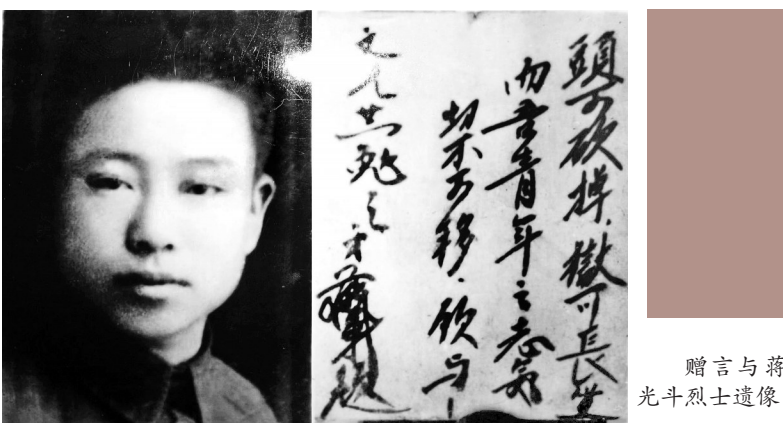 頭可砍掉，獄可長坐
而吾青年之志气
切不可移，欣与
文凡共勉之
赠言与蒋
光斗烈士遗像